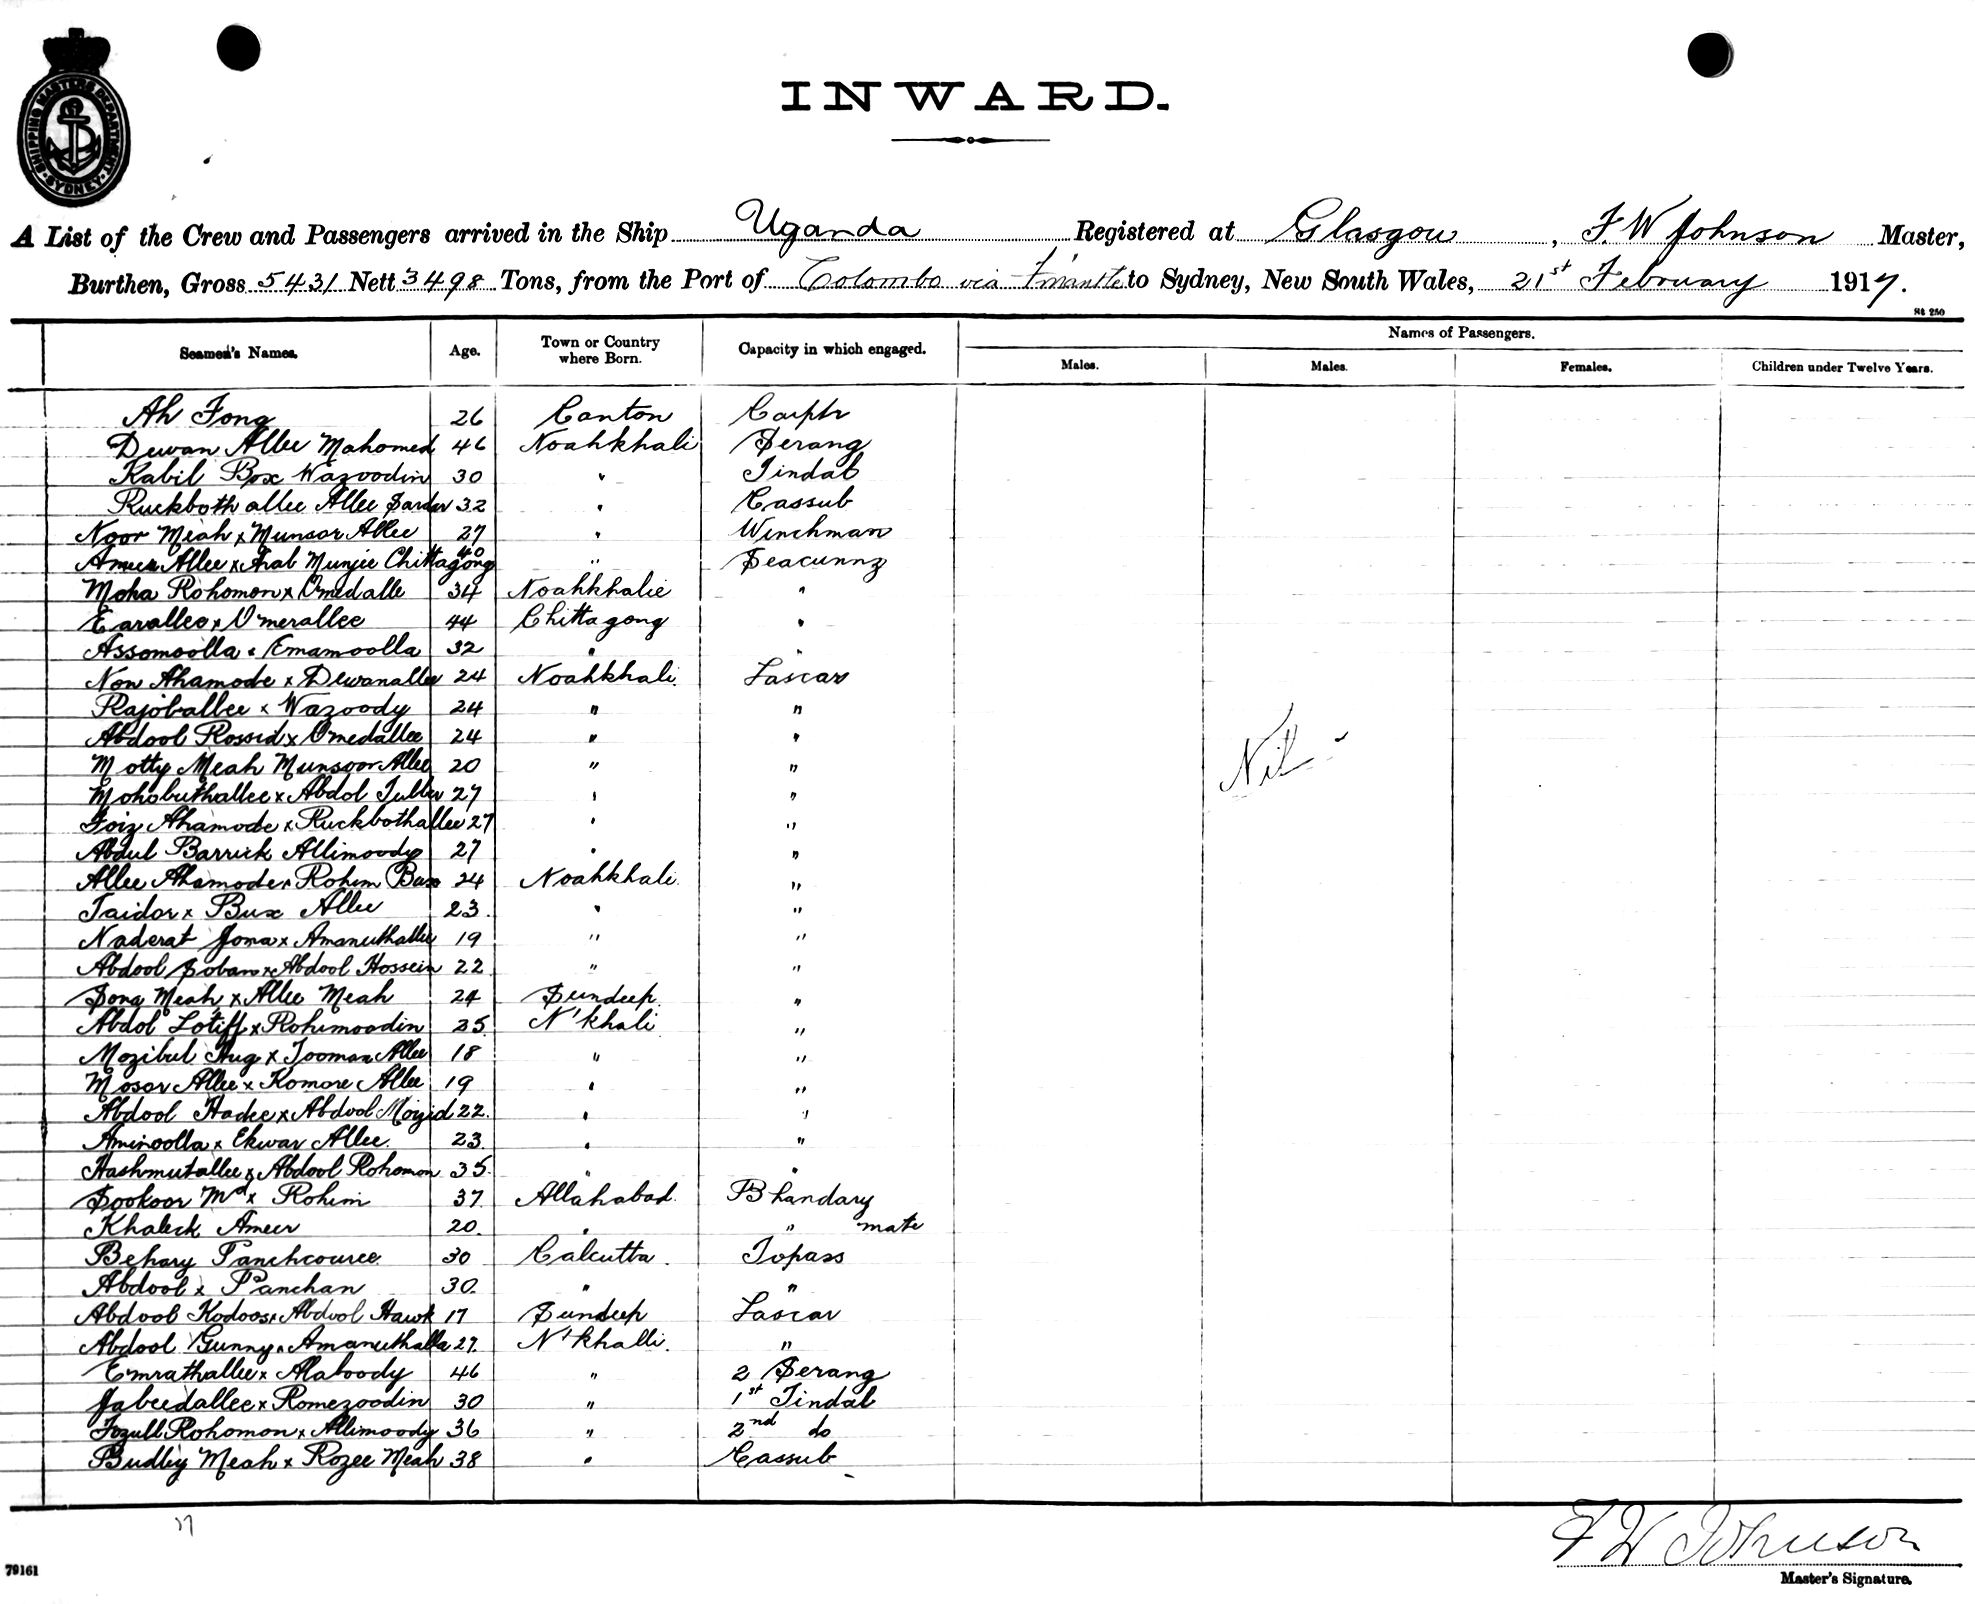 SHIPPING MASTERS DEPARTMENT
SYDNEY
INWARD.
A List of the Crew and Passengers arrived in the Ship Uganda Registered at Glasgow, F. W Johnson Master,
Burthen, Gross 5431 Nett 3498 Tons, from the Port of Colombo via F'mantle to Sydney, New South Wales, 21st February 1917.
St 250
Seamen's Names. Age. Town or Country where Born. Capacity in which engaged. Names of Passengers.
Males. Males. Females. Children under Twelve Years.
Ah Fong 26 Canton Carptr
Dewan Allee Mahomed 46 Noahkhali Serang
Kabil Box Wazoodin 30 " Tindal
Ruckboth allee Allee Sardar 32 " Cassub
Noor Meah x Munsor Allee 27 " Winchman
Ameer Allee x Arab Munjee Chittagong 40 " Seacunny
Moha Rohomon x Omedalle 34 Noahkhalie "
Earallee x Omerallee 44 Chittagong "
Assomoolla x Emamoolla 32 " "
Now Ahamode x Dewanallee 24 Noahkhali. Lascar
Rajoballee x Wazoody 24 " "
Abdool Rossid x Omedallee 24 " "
Motty Meah Munsoor Allee 20 " "
Mohobuthallee x Abdol Juller 27 " "
Foiz Ahamode x Ruckbothallee 27 " "
Abdul Barrick Allimoody 27 " "
Allee Ahamode x Rohim Bux 24 Noahkhali. "
Taidor x Bux Allee 23. " "
Naderat Joma x Amanuthallee 19 " "
Abdool Soban x Abdool Hossein 22 " "
Sona Meah x Allee Meah 24 Sundeep. "
Abdol Lotiff x Rohimoodin 25 N'khali "
Mozibul Hug x Tooman Allee 18 " "
Mosor Allee x Komore Allee 19 " "
Abdool Hadee x Abdool Moizid 22. " "
Aminoolla x Ekwar Allee. 23. " "
Hashmutallee x Abdool Rohomon 35. " "
Sookoor Md x Rohim 37. Allahabad. Bhandary
Khaleck Ameer 20. " " mate
Behary Panchcouree. 30 Calcutta. Topass
Abdool x Panchan 30. " "
Abdool Kodoos x Abdool Hawk 17 Sundeep Lascar
Abdool Gunny x Amanuthalla 27. N'khalli. "
Emrathallee x Alaboody 46 " 2 Serang
Jabeedallee x Romezoodin 30 " 1st Tindal
Fozull Rohomon x Allimoody 36 " 2nd do
Budley Meah x Rozee Meah 38 " Cassub
Nil
F W Johnson
79161
Master's Signature.